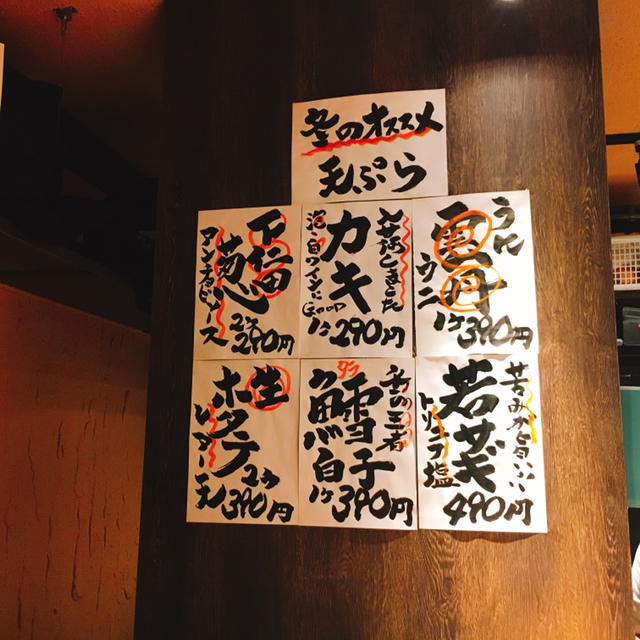 冬のオススメ
天ぷら
うに
雲丹
ウニ
1ヶ390円
お待たせしました
カキ
泡・白ワインにGood
1ヶ290円
下仁田
葱
アンチョビソース
2ヶ290円
苦みが旨い
若菜
トリュフ塩
490円
冬の王者
タラ
鱈白子
1ヶ390円
生
ホタテ
レアー天
2ヶ390円